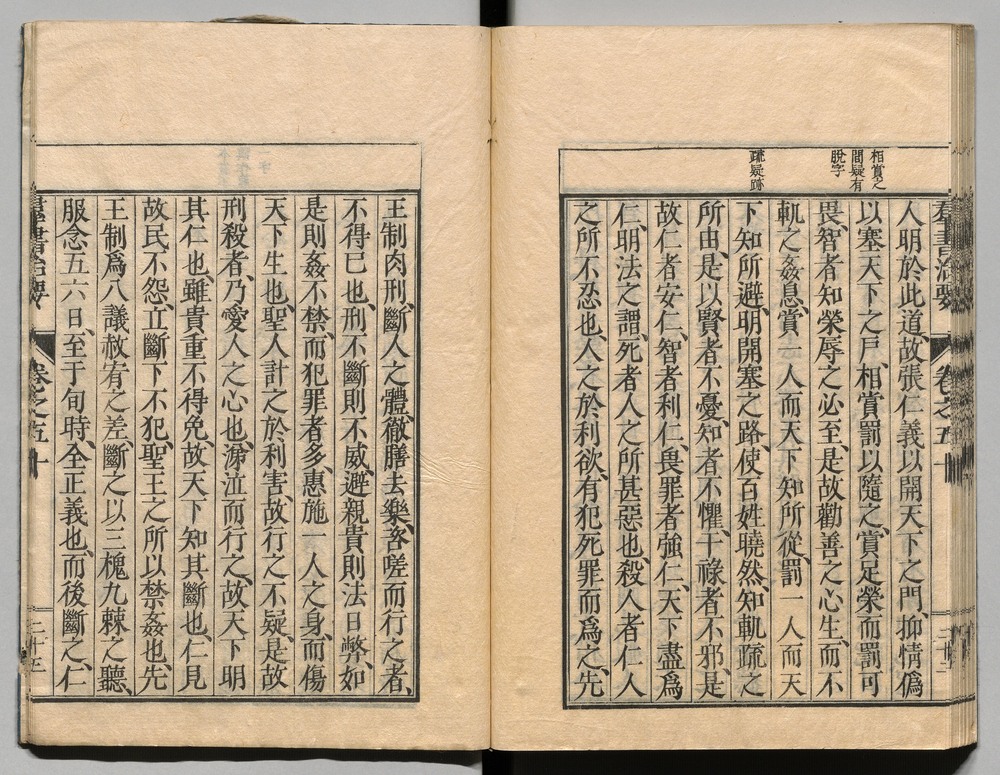 相賞之
間疑有
脫字
疏疑跡
人明於此道故張仁義以開天下之門、抑情僞
以塞天下之戸、相賞罰以隨之、賞足榮而罰可
畏、智者知榮辱之必至、是故勸善之心生、而不
軌之姦息、賞一人而天下知所從、罰一人而天
下知所避、明開塞之路、使百姓曉然、知軌疏之
所由、是以賢者不憂、知者不懼、干祿者不邪、是
故仁者安仁、智者利仁、畏罪者強仁、天下盡爲
仁、明法之謂、死者人之所甚惡也、殺人者仁人
之所不忍也、人之於利欲、有犯死罪而爲之、先
王制肉刑、斷人之體、徹膳去樂、咨嗟而行之者、
不得已也、刑不斷則不威、避親貴則法日弊、如
是則姦不禁、而犯罪者多、惠施一人之身、而傷
天下生也、聖人計之於利害、故行之不疑、是故
刑殺者、乃愛人之心也、涕泣而行之、故天下明
其仁也、雖貴重不得免、故天下知其斷也、仁見
故民不怨、立斷下不犯、聖王之所以禁姦也、先
王制爲八議赦宥之差、斷之以三槐九棘之聽、
服念五六日、至于旬時、全正義也、而後斷之、仁